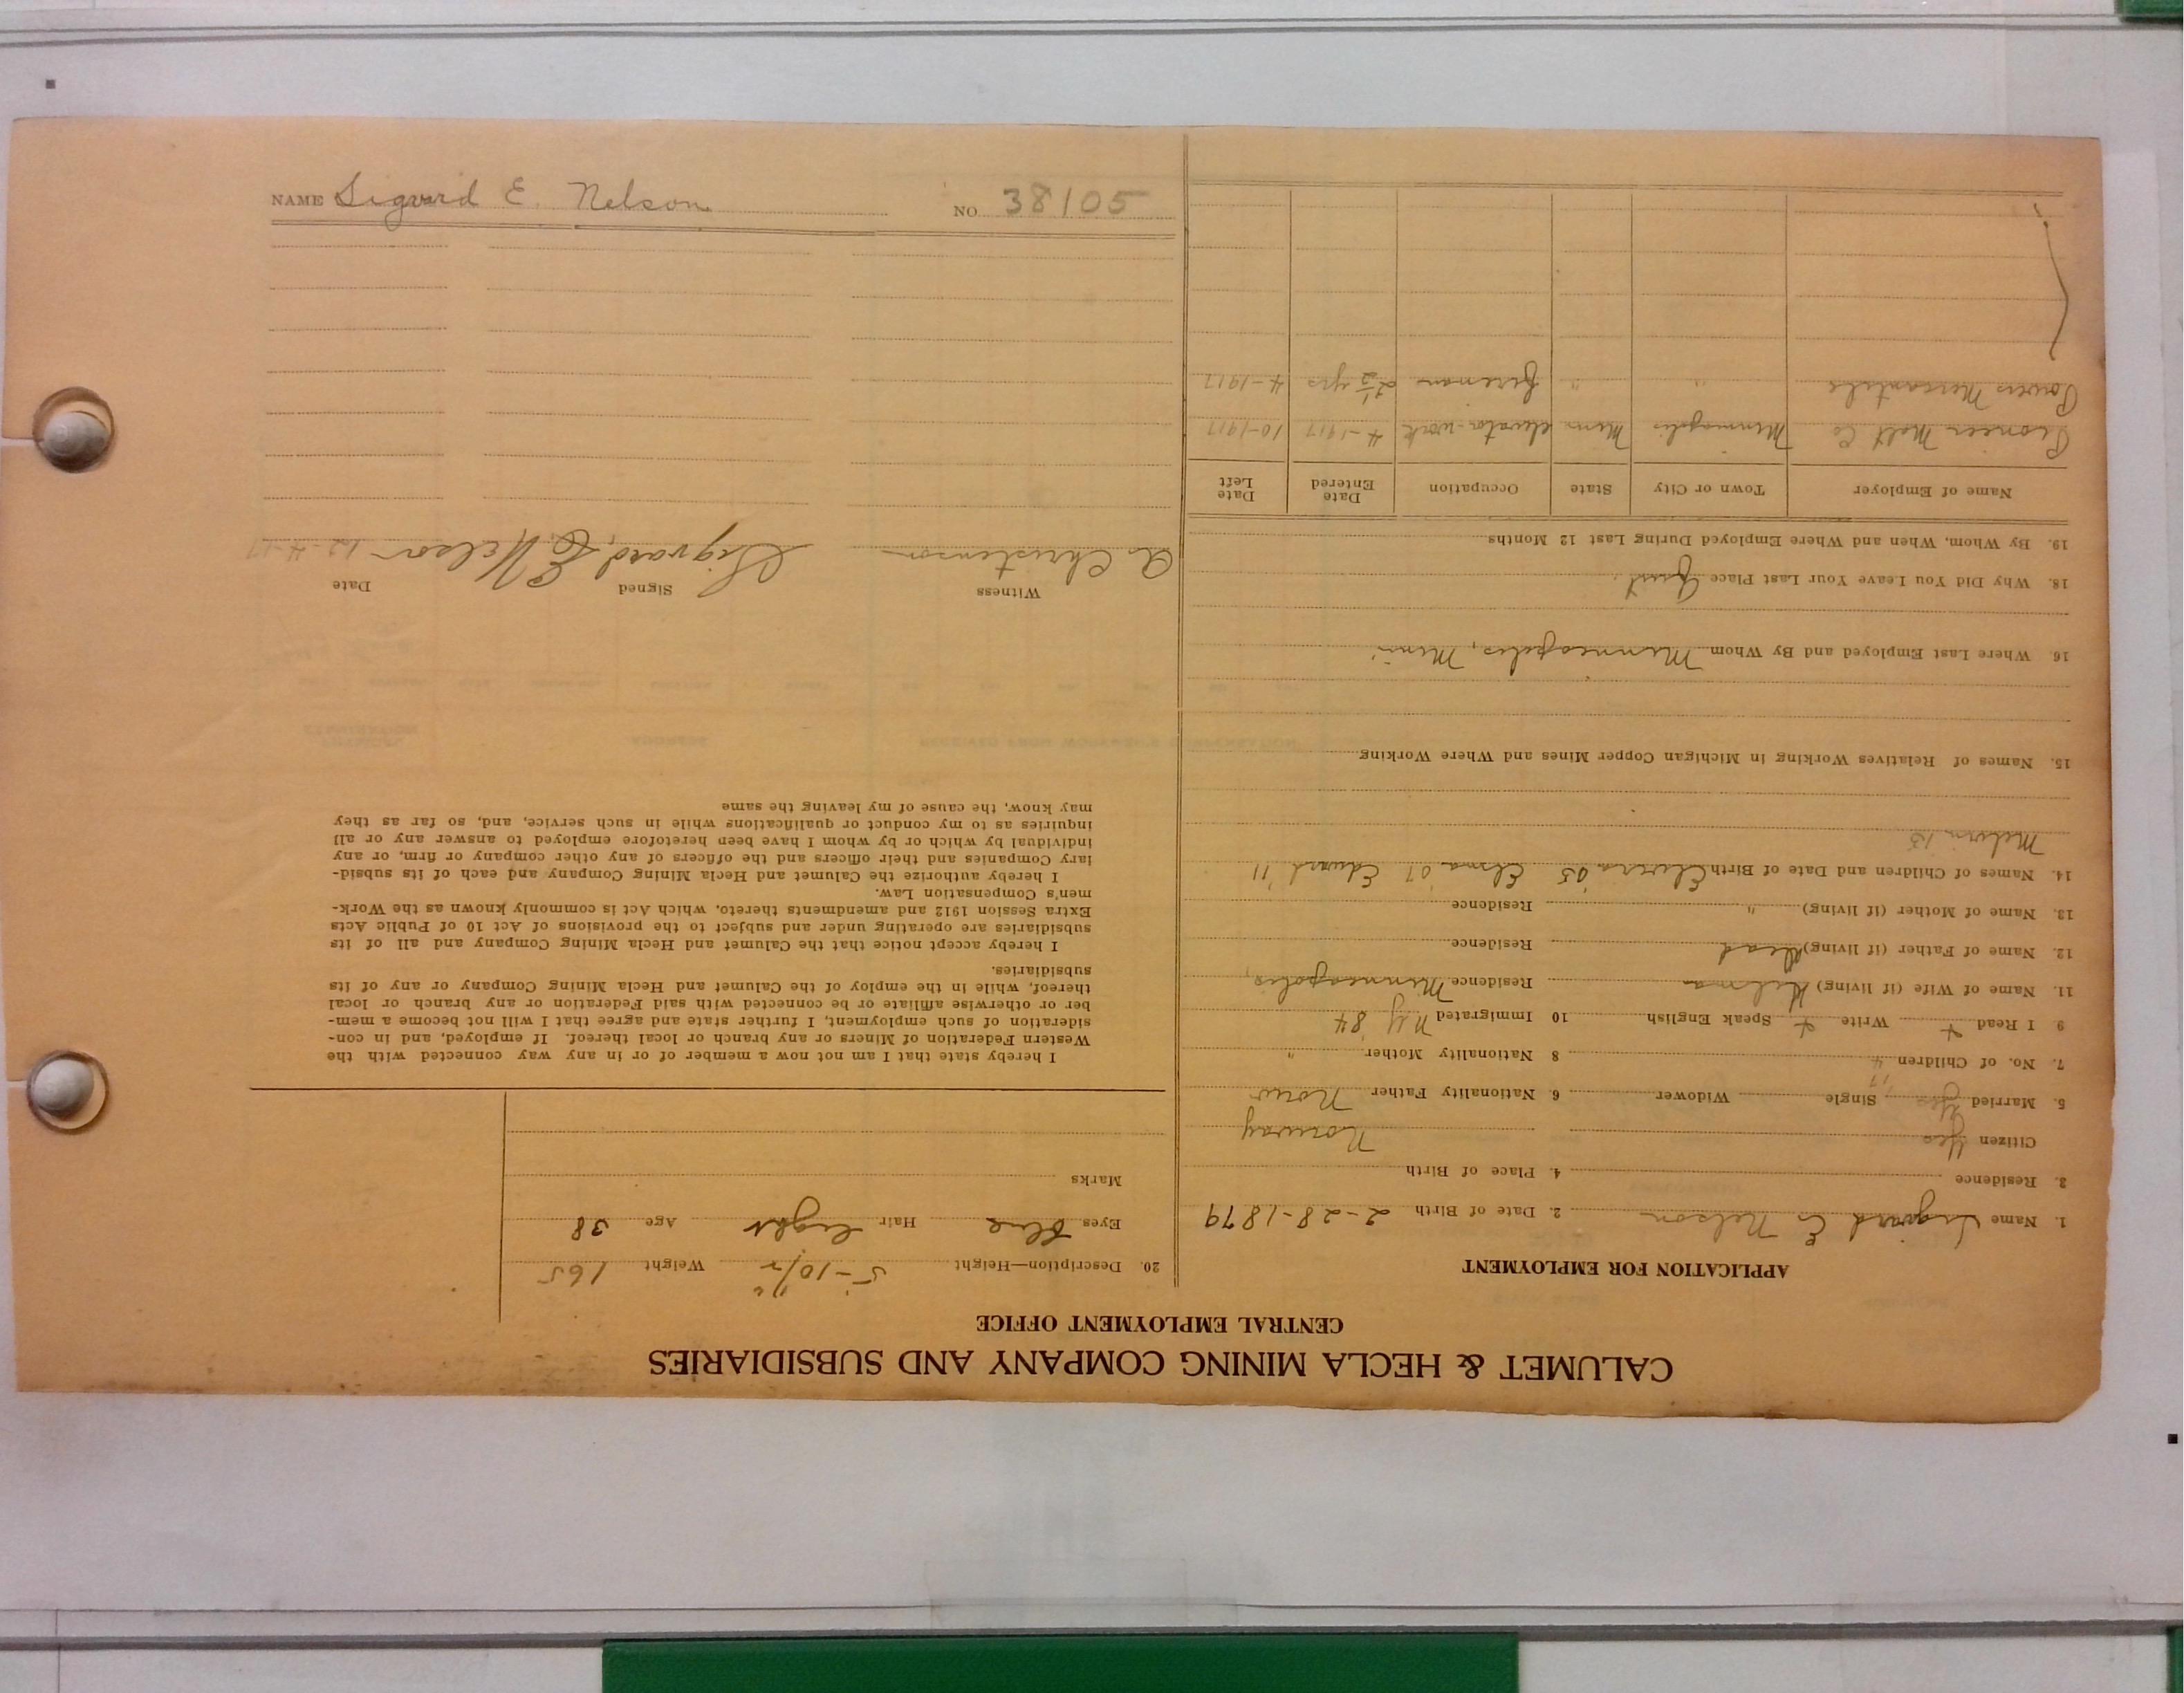 CALUMET & HECLA MINING COMPANY AND SUBSIDIARIES
CENTRAL EMPLOYMENT OFFICE
APPLICATION FOR EMPLOYMENT
1. Name Sigvard E. Nelson 2. Date of Birth 2-28-1879
3. Residence 4. Place of Birth
Citizen Yes Norway
5. Married Yes Single Widower 6. Nationality Father Norw
7. No. of Children 4 8 Nationality Mother "
9 I Read + Write + Speak English 10 Immigrated N.Y '84
11. Name of Wife (if living) Residence Minneapolis,
12. Name of Father (if living) dead Residence
13. Name of Mother (if living) " Residence
14. Names of Children and Date of Birth Elvera '05 Elma '07 Edward '11
Melvin 13
15. Names of Relatives Working in Michigan Copper Mines and Where Working
16. Where Last Employed and By Whom Minneapolis, Minn
18. Why Did You Leave Your Last Place Quit
19. By Whom, When and Where Employed During Last 12 Months
Name of Employer Town or City State Occupation Date Entered Date Left
Pioneer Malt Co Minneapolis Minn elevator work 4-1917 10-1917
Powers Mercantile " " fireman 2½ yrs 4-1917
20. Description—Height 5-10½" Weight 165
Eyes blue Hair light Age 38
Marks
I hereby state that I am not now a member of or in any way connected with the
Western Federation of Miners or any branch or local thereof. If employed, and in con-
sideration of such employment, I further state and agree that I will not become a mem-
ber or otherwise affiliate or be connected with said Federation or any branch or local
thereof, while in the employ of the Calumet and Hecla Mining Company or any of its
subsidiaries.
I hereby accept notice that the Calumet and Hecla Mining Company and all of its
subsidiaries are operating under and subject to the provisions of Act 10 of Public Acts
Extra Session 1912 and amendments thereto, which Act is commonly known as the Work-
men's Compensation Law.
I hereby authorize the Calumet and Hecla Mining Company and each of its subsid-
iary Companies and their officers and the officers of any other company or firm, or any
individual by which or by whom I have been heretofore employed to answer any or all
inquiries as to my conduct or qualifications while in such service, and, so far as they
may know, the cause of my leaving the same
Witness Signed Date
A. Christenson Sigvard, E. Nelson 12-4-17
NAME Sigvard E. Nelson NO 38105